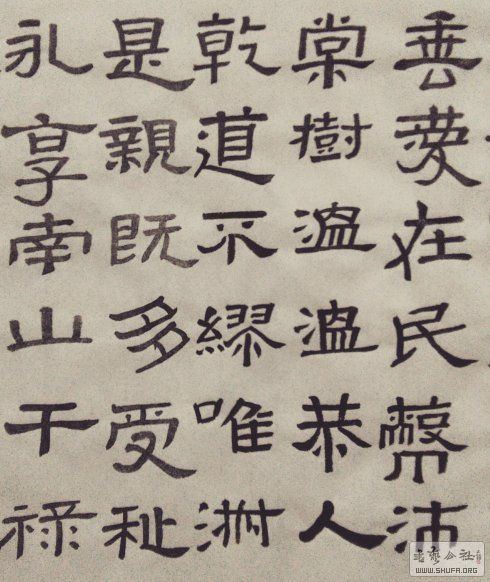 垂愛在民蔽沛
棠樹溫溫恭人
乾道不繆唯淑
是親既多受祉
永享南山干祿
书艺公社
WWW.SHUFA.ORG